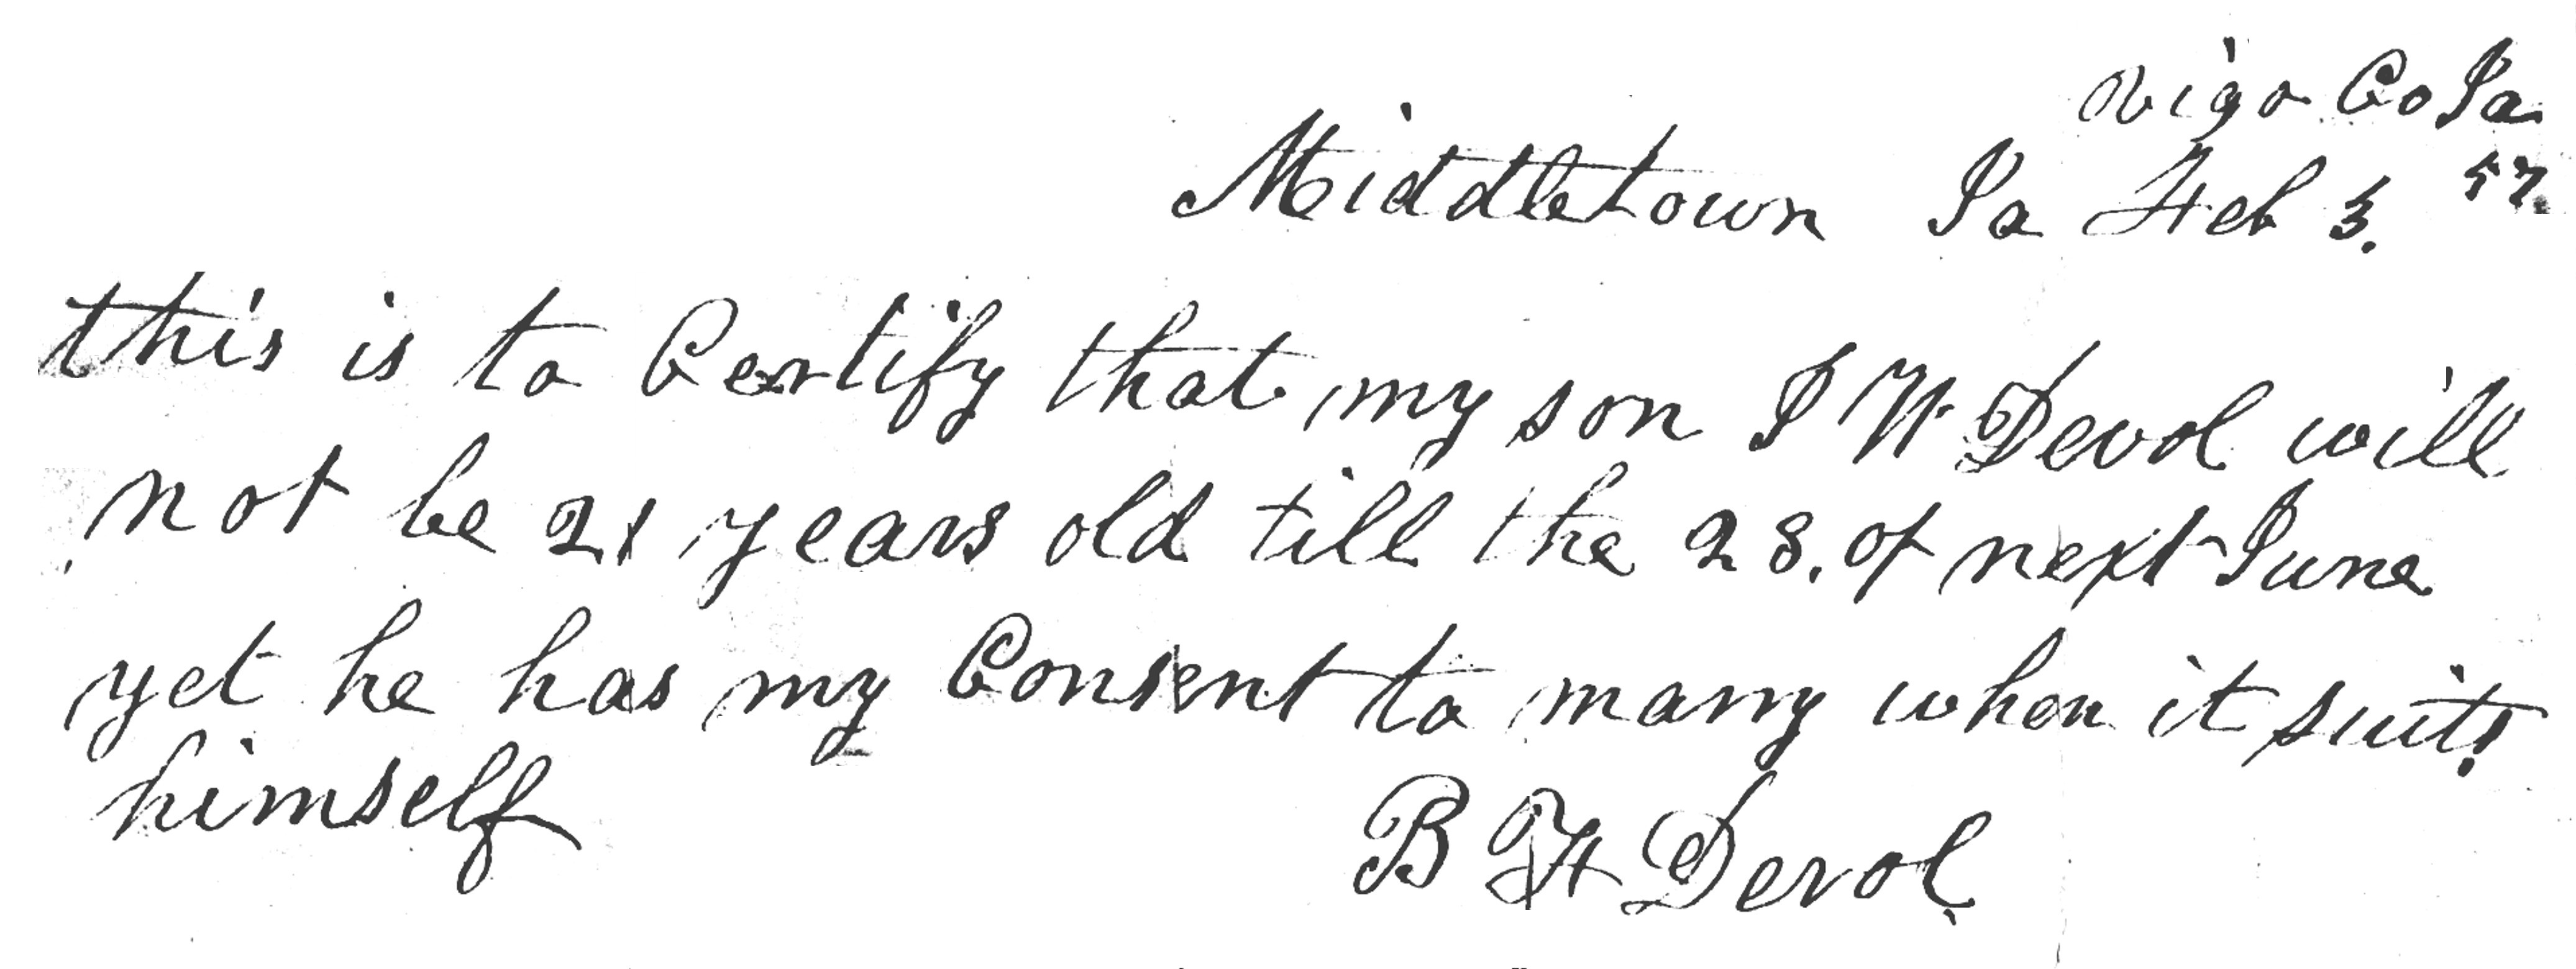 vigo Co Ia
Middletown Ia Feb 3. 57
this is to Certify that my son I W Devol will
not be 21 years old till the 28. of next June
yet he has my Consent to marry when it suits
himself
B H Devol